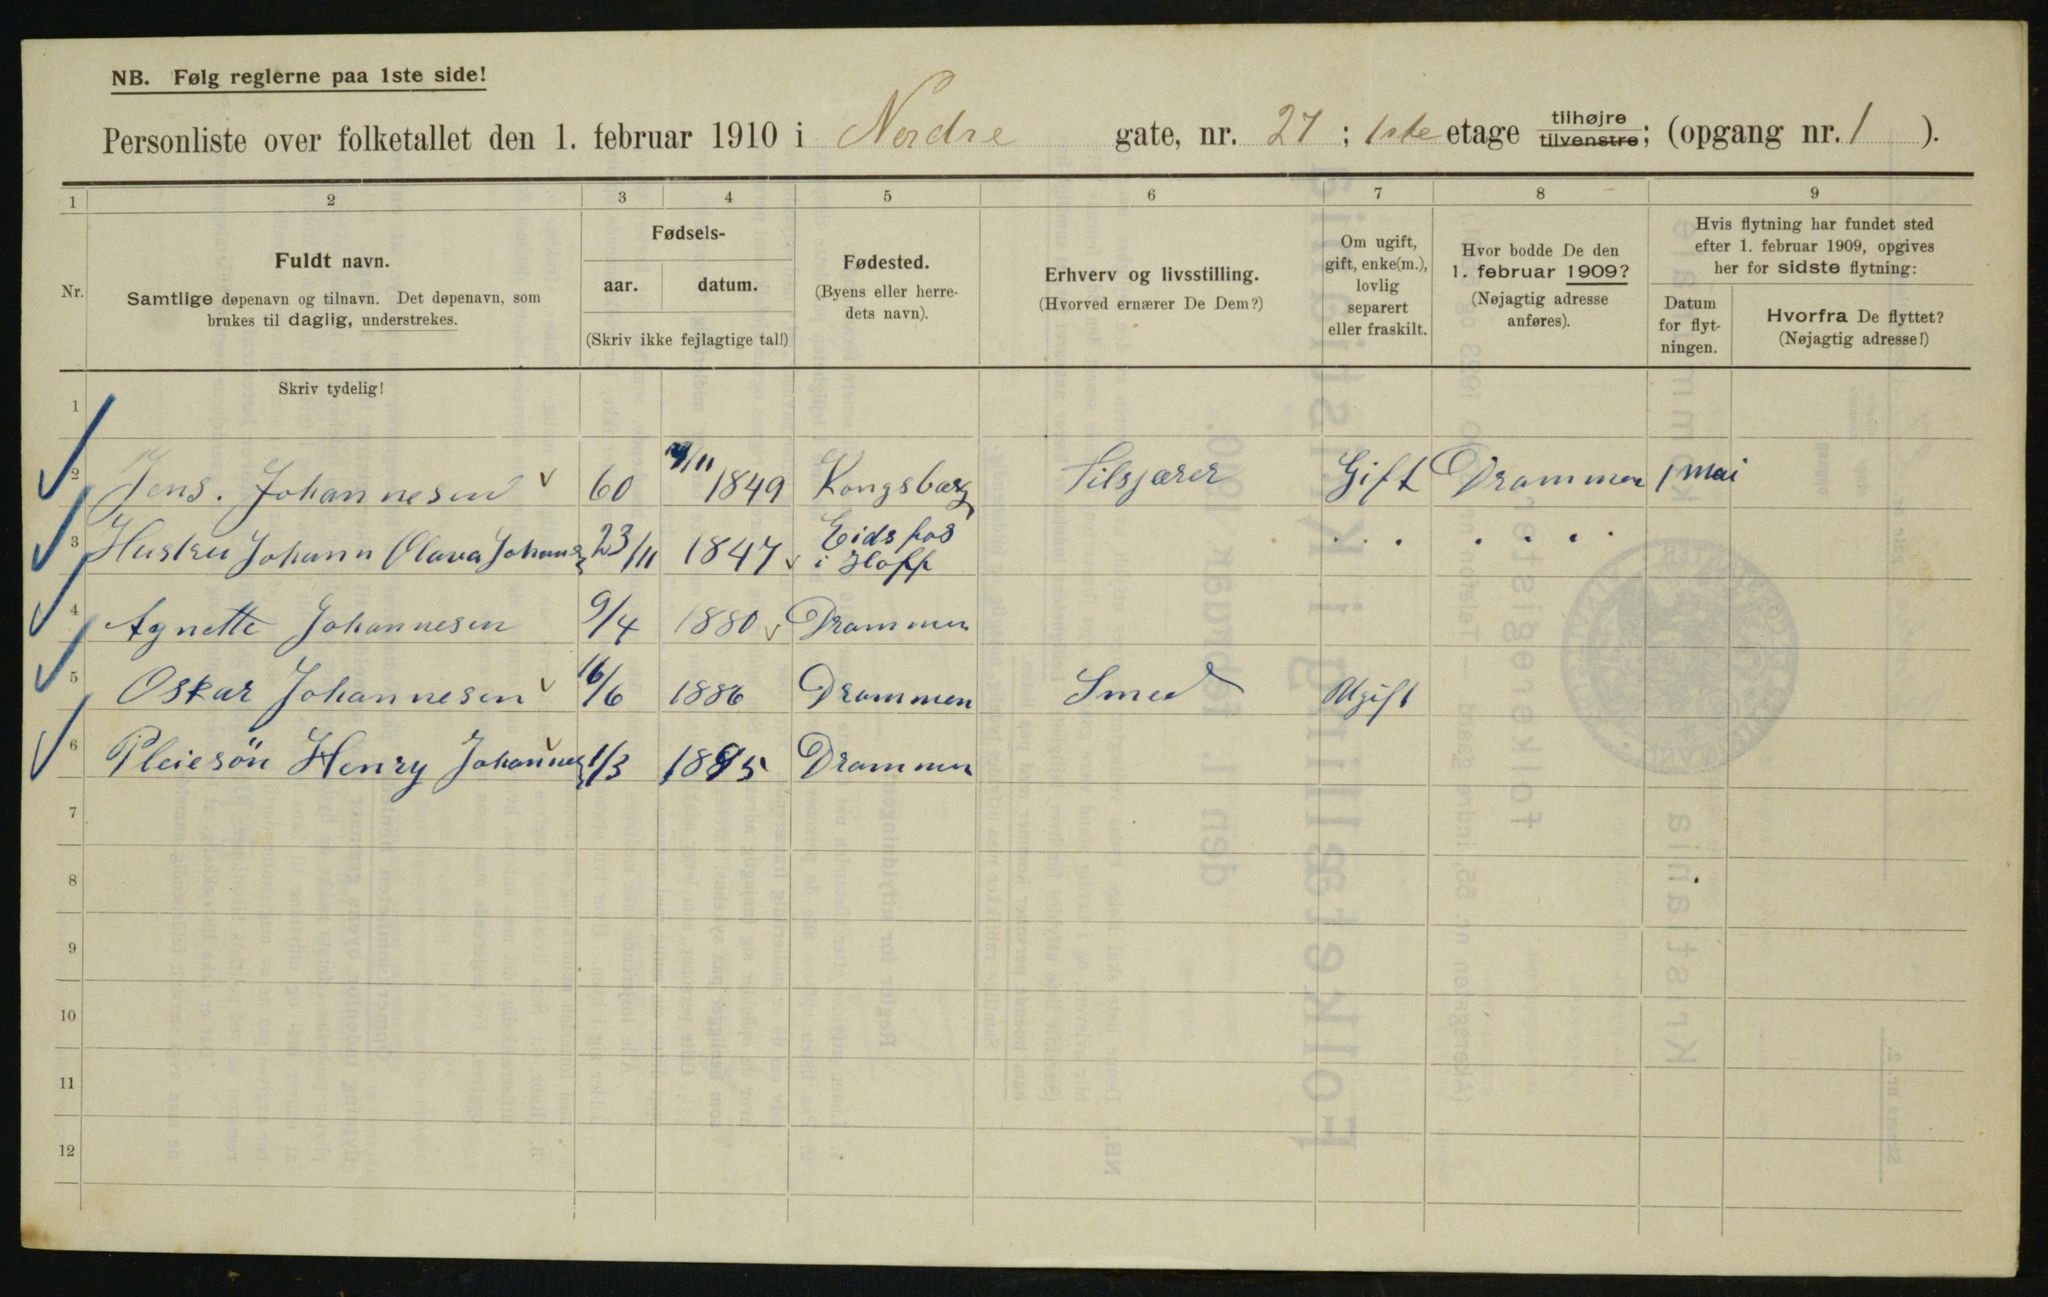 NB. Følg reglerne paa 1ste side!
Personliste over folketallet den 1. februar 1910 i Nordre gate, nr. 27 ; 1ste etage tilhøjre tilvenstre; (opgang nr. 1 ).
1 2 3 4 5 6 7 8 9
Nr.
Fuldt navn.
Samtlige døpenavn og tilnavn. Det døpenavn, som
brukes til daglig, understrekes.
Fødsels-
aar. datum.
(Skriv ikke fejlagtige tal!)
Fødested.
(Byens eller herre-
dets navn).
Erhverv og livsstilling.
(Hvorved ernærer De Dem?)
Om ugift,
gift, enke(m.),
lovlig
separert
eller fraskilt.
Hvor bodde De den
1. februar 1909?
(Nøjagtig adresse
anføres).
Hvis flytning har fundet sted
efter 1. februar 1909, opgives
her for sidste flytning:
Datum
for flyt-
ningen.
Hvorfra De flyttet?
(Nøjagtig adresse!)
Skriv tydelig!
1
2 Jens. Johannesen 60 /11 1849 Kongsberg Gift Drammen 1 mai
3 Hustru Johann Olava Johans 23/11 1847 Eidsfos
i Hoff
4 Agnette Johannesen 9/4 1880 Drammen
5 Oskar Johannesen 16/6 1886 Drammen Smed Ugift
6 Pleiesøn Henry Johannes 1/3 1895 Drammen
7
8
9
10
11
12